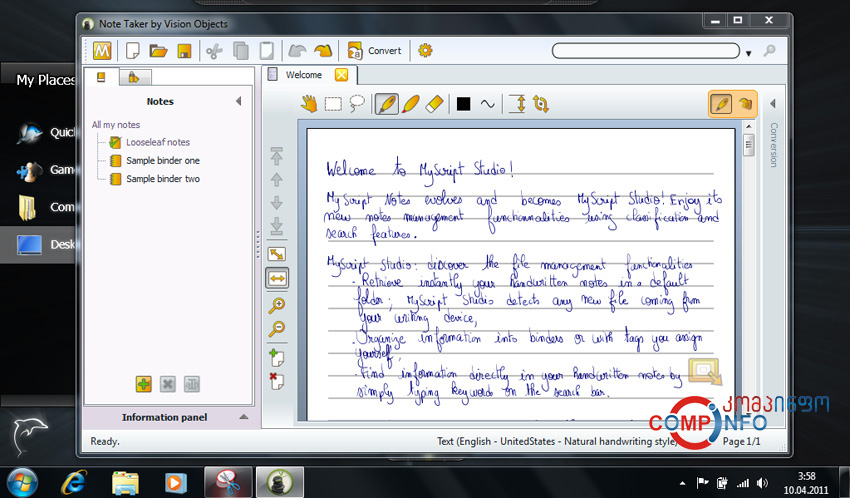 Note Taker by Vision Objects
Convert
My Places
Quic
Game
Com
Desk
Notes
All my notes
Looseleaf notes
Sample binder one
Sample binder two
Information panel
Ready.
Welcome
Conversion
Welcome to MyScript Studio!
MyScript Notes evolves and becomes MyScript Studio! Enjoy its
new notes management functionnalities using classification and
search features.
MyScript Studio: discover the file management functionalities
- Retrieve instantly your handwritten notes in a default
folder; MyScript Studio detects any new file coming from
your writing device,
- Organize information into binders or with tags you assign
yourself,
- Find information directly in your handwritten notes by
simply typing keywords on the search bar.
Text (English - UnitedStates - Natural handwriting style)
Page1/1
კომპინფო
COMPINFO
3:58
10.04.2011